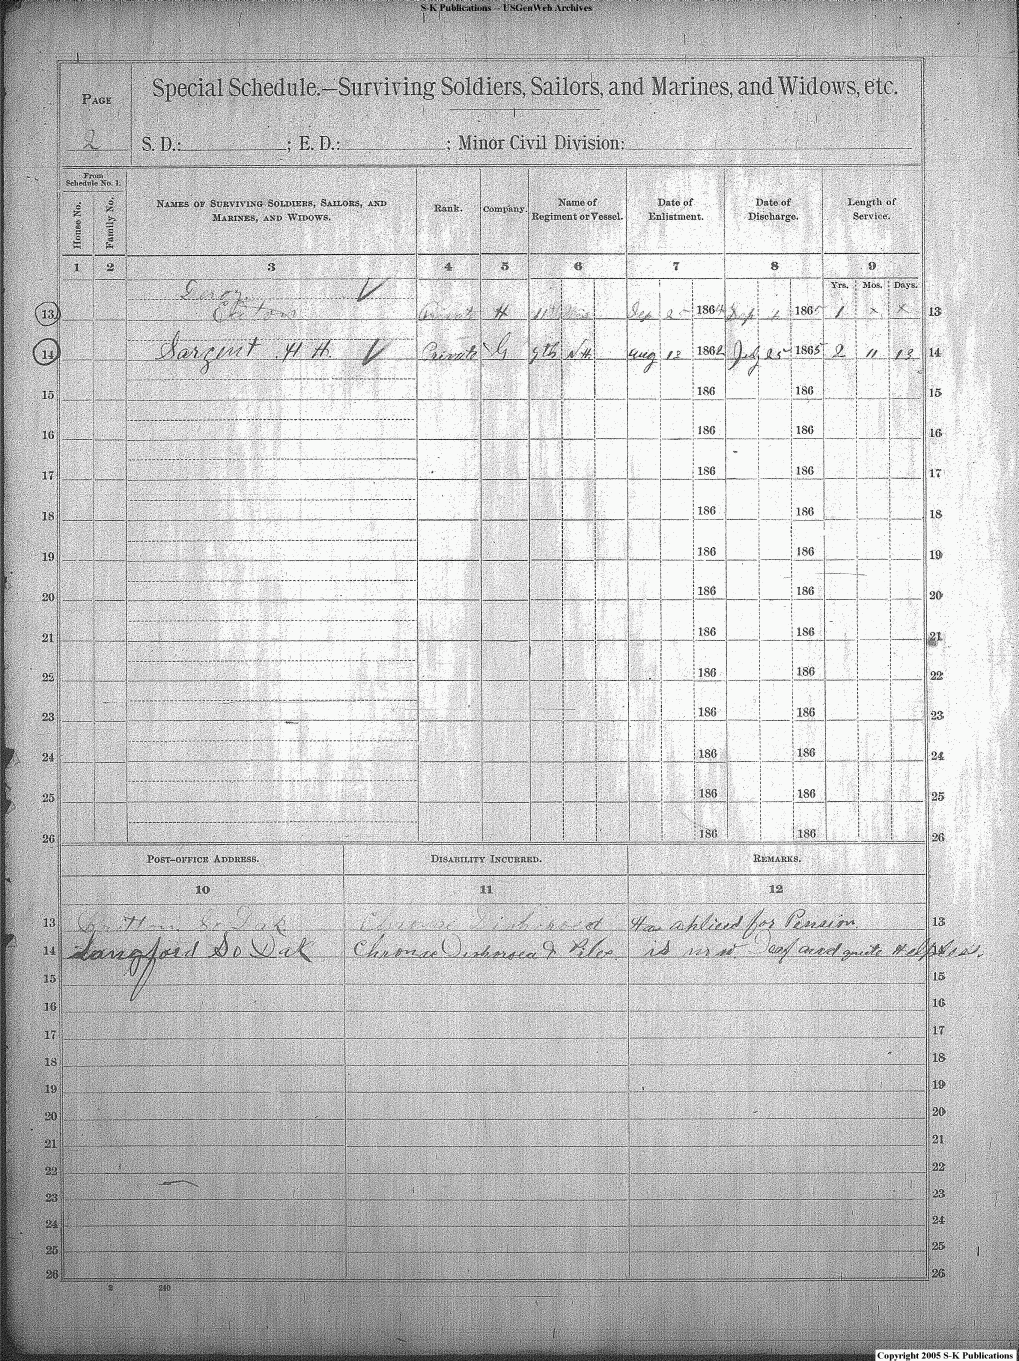 S-K Publications – USGenWeb Archives
PAGE
2
Special Schedule.—Surviving Soldiers, Sailors, and Marines, and Widows, etc.
S. D.: ; E. D.: ; Minor Civil Division:
From Schedule No. 1.
House No.
Family No.
NAMES OF SURVIVING SOLDIERS, SAILORS, AND MARINES, AND WIDOWS.
Rank.
Company.
Name of Regiment or Vessel.
Date of Enlistment.
Date of Discharge.
Length of Service.
1 2 3 4 5 6 7 8 9
Yrs. Mos. Days.
13 Private H Sep 1864 Sep 1 1865 1 x x 13
14 Sargent H H. Private G 9th N.H. Aug 13 1862 July 25 1865 2 11 12 14
15 186 186 15
16 186 186 16
17 186 186 17
18 186 186 18
19 186 186 19
20 186 186 20
21 186 186 21
22 186 186 22
23 186 186 23
24 186 186 24
25 186 186 25
26 186 186 26
POST-OFFICE ADDRESS. DISABILITY INCURRED. REMARKS.
10 11 12
13 Britton So Dak Has aplied for Pension 13
14 Langford So Dak Chronic & Piles is now Deaf and quite Helpless. 14
15 15
16 16
17 17
18 18
19 19
20 20
21 21
22 22
23 23
24 24
25 25
26 26
240
Copyright 2005 S-K Publications